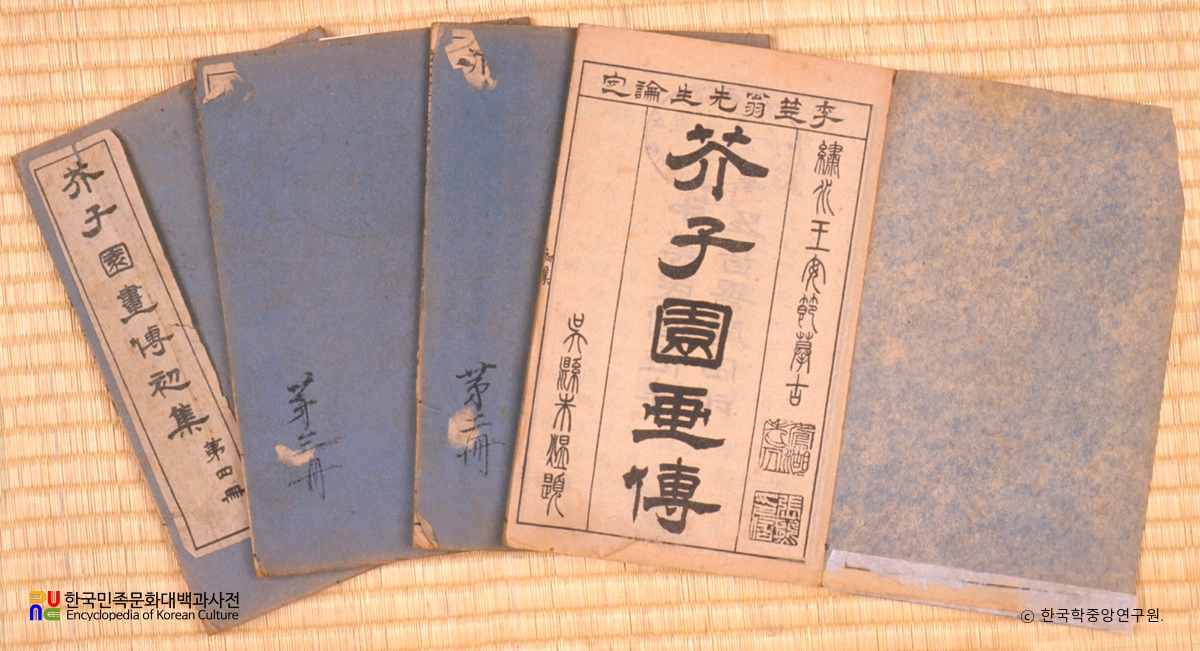 芥子園畫傳初集
第三冊
第二冊
初集
李笠翁先生論定
繡水王安節摹古
芥子園画傳
吳縣朱題
한국민족문화대백과사전
Encyclopedia of Korean Culture
© 한국학중앙연구원.